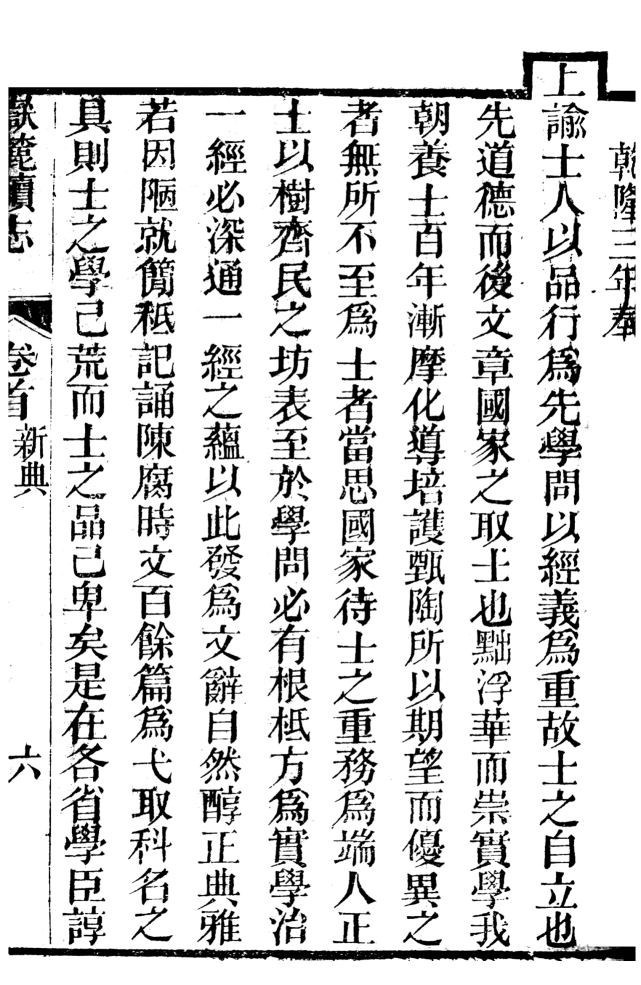 乾隆三年奉
上諭士人以品行爲先學問以經義爲重故士之自立也
先道德而後文章國家之取士也黜浮華而崇實學我
朝養士百年漸摩化導培護甄陶所以期望而優異之
者無所不至爲士者當思國家待士之重務爲端人正
士以樹齊民之坊表至於學問必有根柢方爲實學治
一經必深通一經之蘊以此發爲文辭自然醇正典雅
若因陋就簡秪記誦陳腐時文百餘篇爲弋取科名之
具則士之學已荒而士之品已卑矣是在各省學臣諄
嶽麓續志 卷首 新典 六